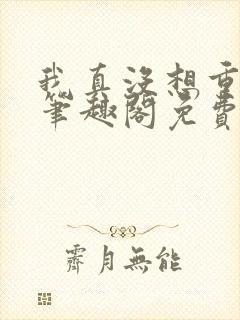 我真没想重
笔趣阁免费
霽月無能